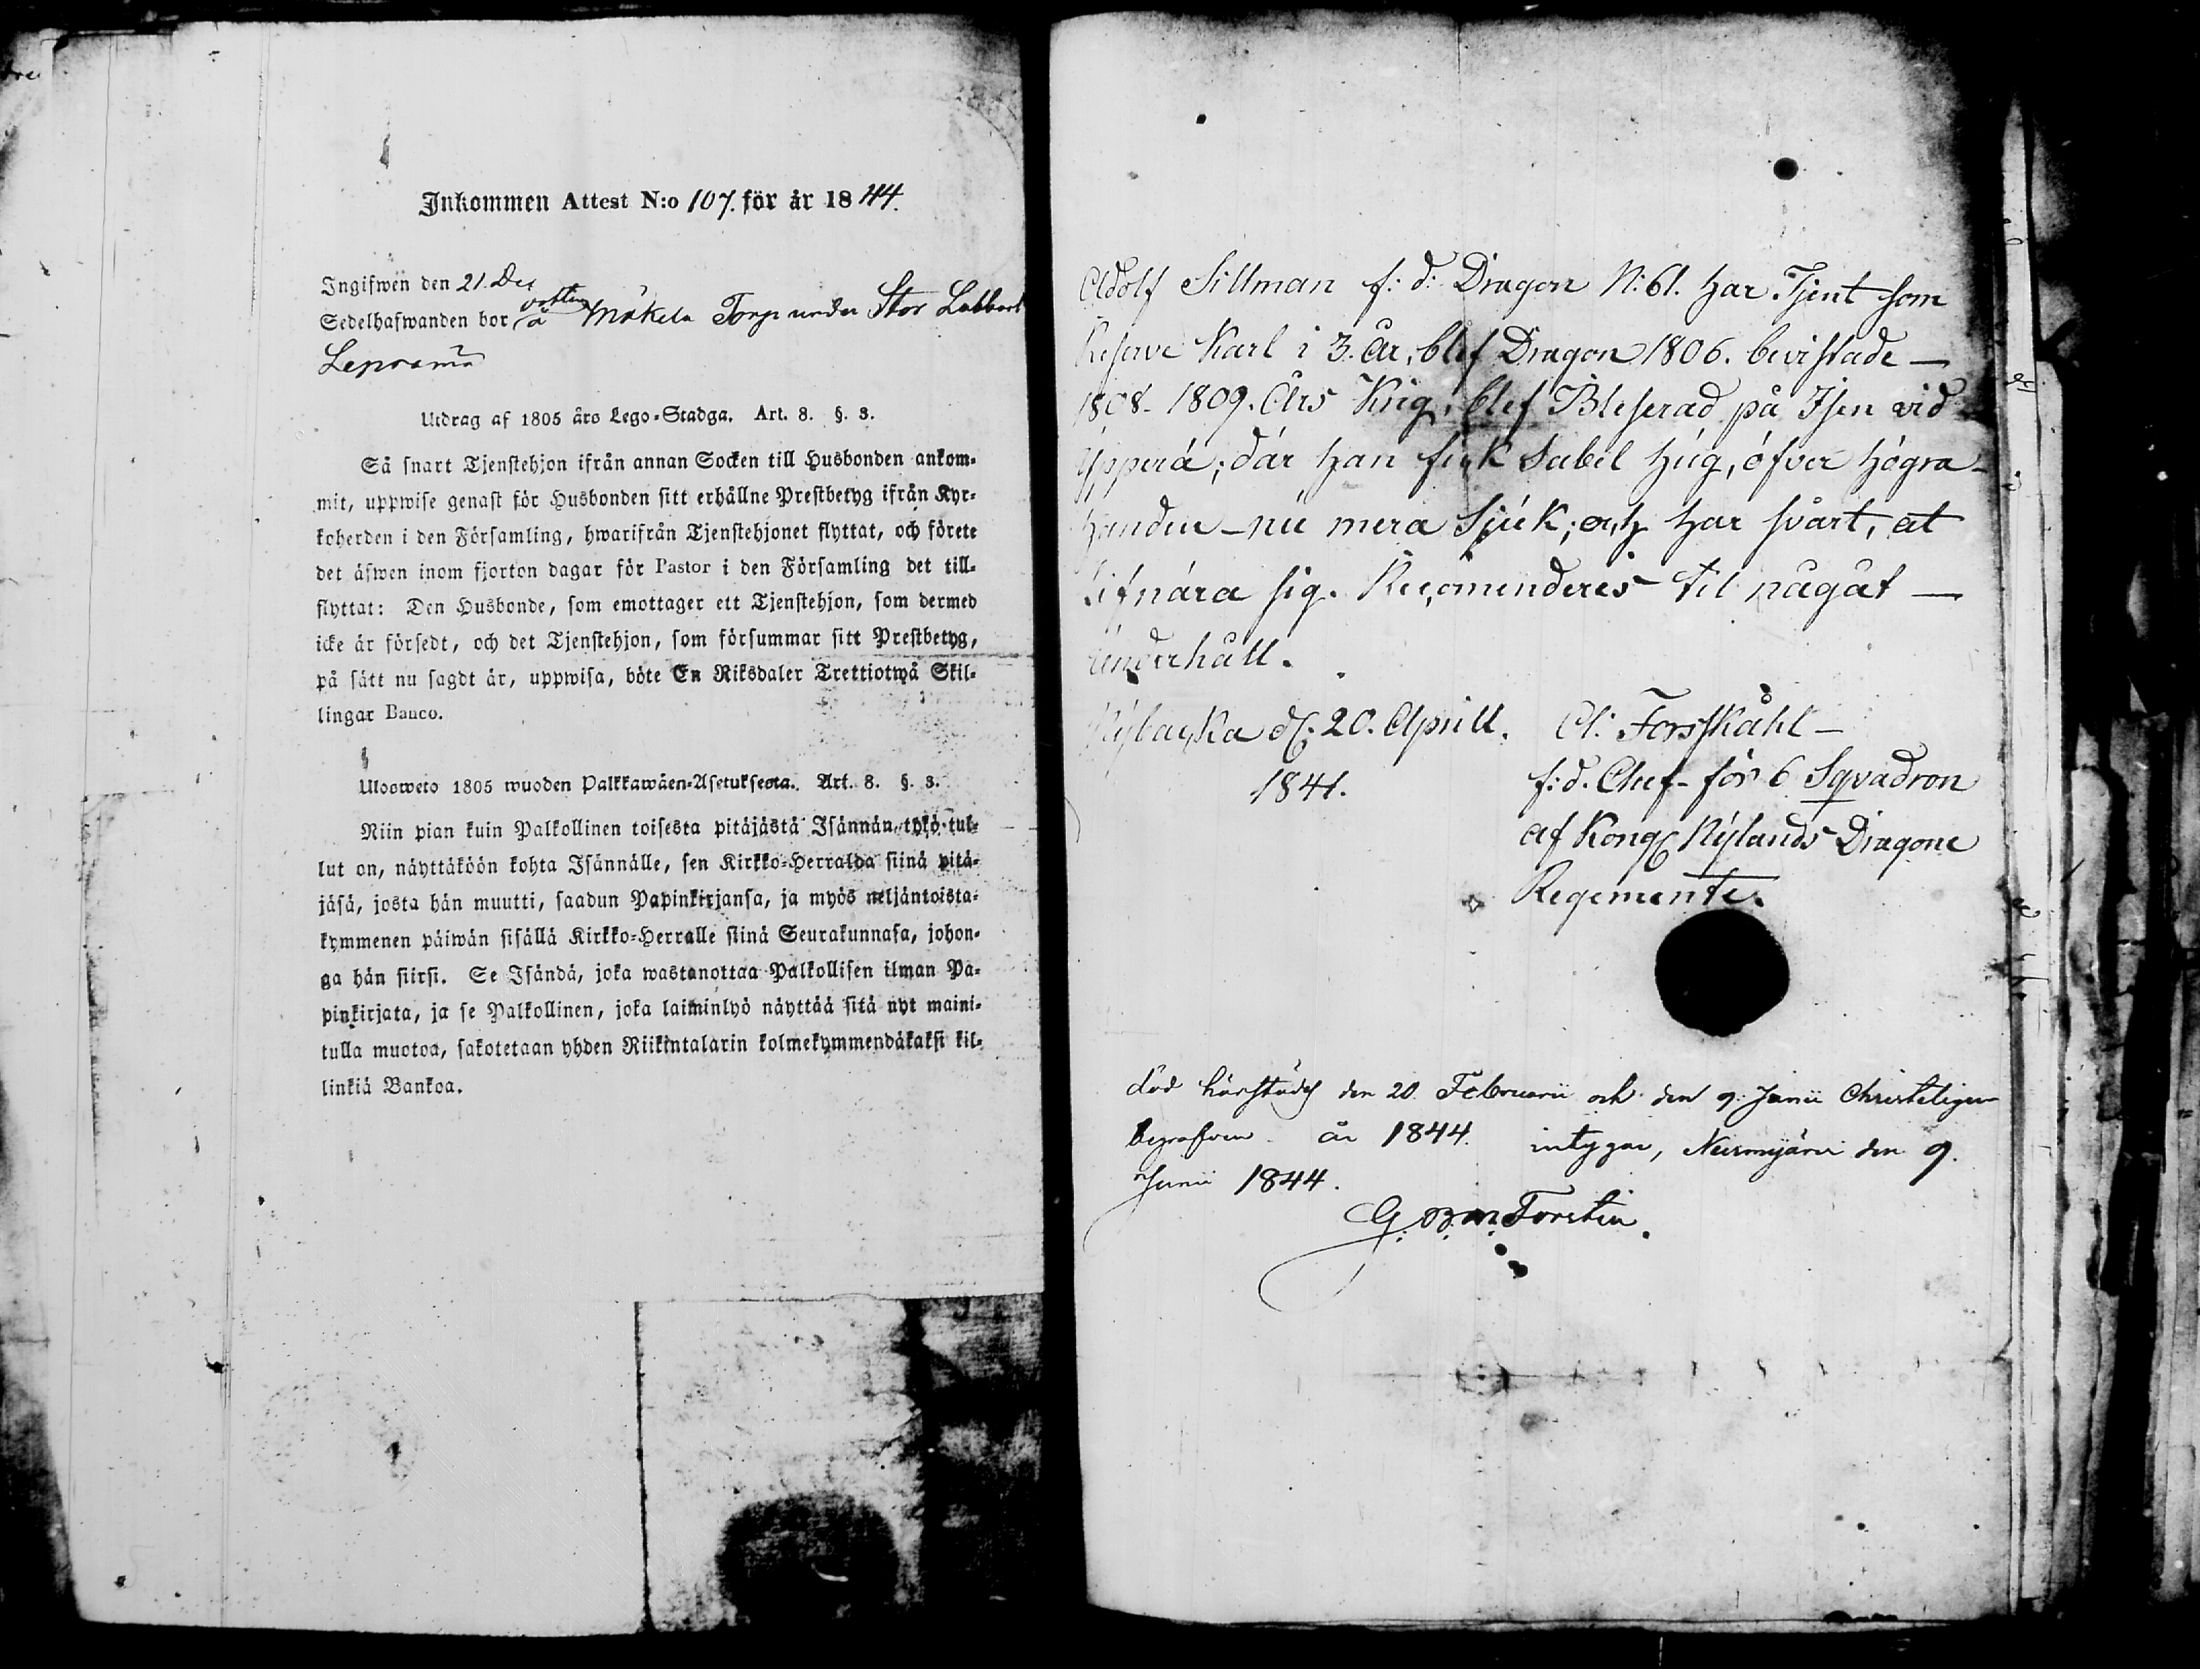 Inkommen Attest N:o 107. för år 1844.
Ingifwen den 21 Dec
Sedelhafwanden bor å Mäkelä Torp under Stor Labbart
Lepsamä
Utdrag af 1805 års Lego-Stadga. Art. 8. §. 3.
Så snart Tjenstehjon ifrån annan Socken till Husbonden ankom-
mit, uppwise genast för Husbonden sitt erhållne Prestbetyg ifrån Kyr-
koherden i den Församling, hwarifrån Tjenstehjonet flyttat, och förete
det äfwen inom fjorton dagar för Pastor i den Församling det till-
flyttat: Den Husbonde, som emottager ett Tjenstehjon, som dermed
icke är försedt, och det Tjenstehjon, som försummar sitt Prestbetyg,
på sätt nu sagdt är, uppwisa, böte En Riksdaler Trettiotwå Skil-
lingar Banco.
Ulosweto 1805 wuoden Palkkawäen-Asetuksesta. Art. 8. §. 3.
Niin pian kuin Palkollinen toisesta pitäjästä Isännän tykö tul-
lut on, näyttäköön kohta Isännälle, sen Kirkko-Herralda siinä pitä-
jäsä, josta hän muutti, saadun Papinkirjansa, ja myös neljäntoista-
kymmenen päiwän sisällä Kirkko-Herralle siinä Seurakunnasa, johon-
ga hän siirsi. Se Isändä, joka wastanottaa Palkollisen ilman Pa-
pinkirjata, ja se Palkollinen, joka laiminlyö näyttää sitä nyt maini-
tulla muotoa, sakotetaan yhden Riikintalarin kolmekymmendäkaksi kil-
linkiä Bankoa.
Adolf Sillman f: d: Dragon N: 61. har Tjent som
Reserve Karl i 3. År, blef Dragon 1806. bevistade —
1808- 1809. Års Krig, blef Bleserad på Isen vid
Ypperå; där han fick Sabel húg, öfver högra -
handen - nú mera Sjúk; och har svårt, at
lifnära sig. Recomenderes til någåt —
Únderhåll.
Nÿbacka d: 20. Aprill. Cl: Forsskåhl -
1841.
f: d. Chef - för 6 Sqvadron
af Kongl Nÿlands Dragone
Regemente.
död härstädes den 20 Februarii och den 9 Junii Christeligen
begrafven år 1844. intygar, Nurmijärvi den 9.
Junii 1844.
G. W. Forstén.